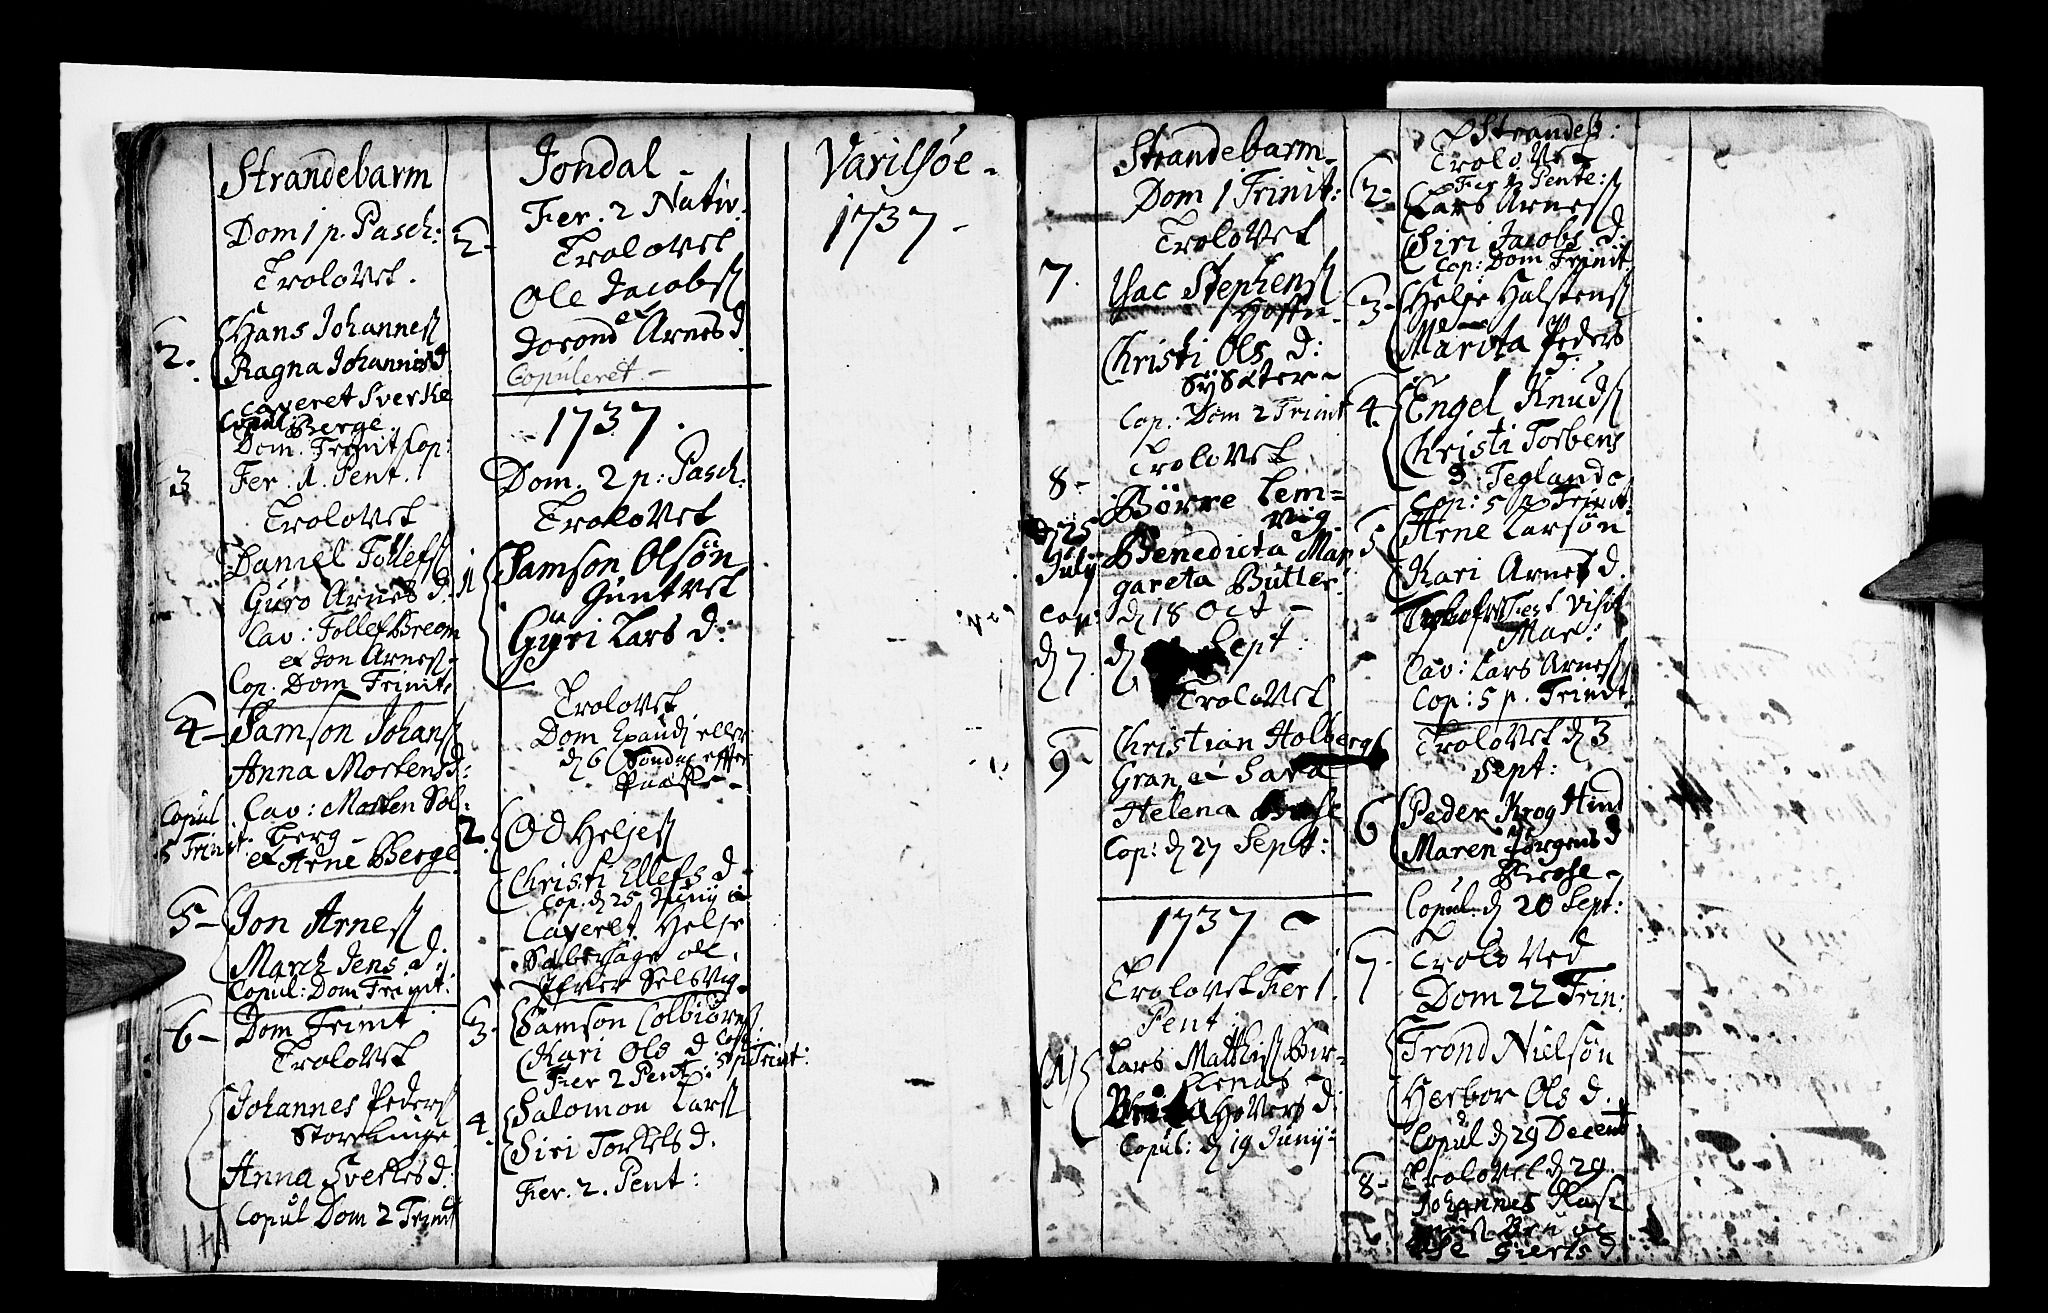 Strandebarm
Dom 1 p. Pasch:
Trolovet.
2. Hans Johanneß
Ragna Johannis d
caveret Sverke
Copul Berge
Dom. Trinit Cop:
3 Fer. 1. Pent.
Trolovet
Daniel Tollefß
Guro Arnes d.
Cav: Tollef Breom
et Jon Arneß
Cop. Dom Trinit
4- Samson Johanß
Anna Mortens d:
Cav: Morten Sol-
Copul berg
5 Trinit. et Arne Berge
5- Jon Arneß
Jens d:
Copul: Dom Trinit.
6- Dom Trinit
Trolovet
Johannes Pederß
Storelinge
Anna Sverkes d:
Copul Dom 2 Trinit
Jondal -
Fer. 2 Nativ.
2- Trolovet
Ole Jacobß
et
Jorond Arnes d
Copuleret -
1737.
Dom. 2 p: Pasch.
Trolovet
1 Samson Olsøn
Guntvet
Gyri Lars d:
Trolovet
Dom Exaudi eller
d 6 Søndag effter
Paask -
2. Od Heljeß
Christi Ellefs d -
Cop. d 25 Juny
Caveret Helje
oc
Selsvig.
3. Samson Colbiørnß
Kari Ols d Cop.
Fer 2 Pent: 5 p Trinit:
4. Salomon Larß
Siri Torkels d.
Fer. 2. Pent:
Varilsøe -
1737 -
Strandebarm -
Dom 1 Trinit:
Trolovet
7. Isac Stephenß
Hoffn -
Christi Ols d:
Sysæter -
Cop: Dom 2 Trinit
Trolovet
8- Børre Lem=
d 25 vig
July Benedicta Mar
gareta Butler
Cop: d 18 Oct -
d 7 d Sept:
Trolovet
9- Christian Holberg
Gran et Sara
Helena
Cop: d 27 Sept:
1737 -
Trolovet Fer 1.
Pent
1 Lars Mathiß Bir-
kenæs -
Hovers d:
Copul: d 19 Juny-
Strandeb:
Trolovet
Fer 1 Pente:
2- Lars Arneß
Siri Jacobs d:
Cop: Dom Trinit
3- Helje Halstenß
Marita Peders
d:
4- Engel Knudß
Christi Torbens
d Teglande
Cop: 5 p Trinit:
5 Arne Larsøn
Kari Arnes d.
Fest Visit
Mar:
Cav: Lars Arneß
Cop: 5 p. Trinit
Trolovet d 3
Sept:
6 Peder Krog Hind
Maren Jørgens d
Copul: d 20 Sept:
7- Troloved
Dom 22 Trin:
Trond Nielsøn
Herbor Ols d.
Copul d 29 Decemb
8- Trolovet d 29
Johannes
oc
Gierts d